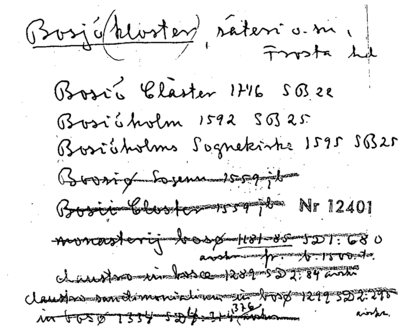 Bosjö (kloster), säteri o. sn,
Frosta hd
Bosiö Clåster 1746 SB 22
Bosiöholm 1592 SB 25
Bosiöholms Sognekirke 1595 SB 25
Boosiø Sogenn 1559 jb
Bosiö Closter 1559 jb Nr 12401
monasterij bosø 1181-85 SD 1: 680
avskr fr. b. 1500-t.
claustro in bosø 1284 SD 2: 84 avskr
claustro sanctimonialium in bosø 1299 SD 2: 295
in bosø 1334 SD 4: 314 avskr avskr.
376